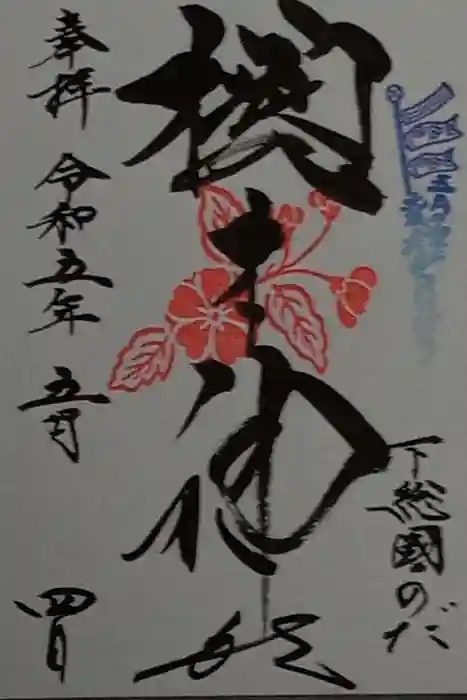 下総國のだ
櫻木神社
奉拝 令和五年 五月 四日